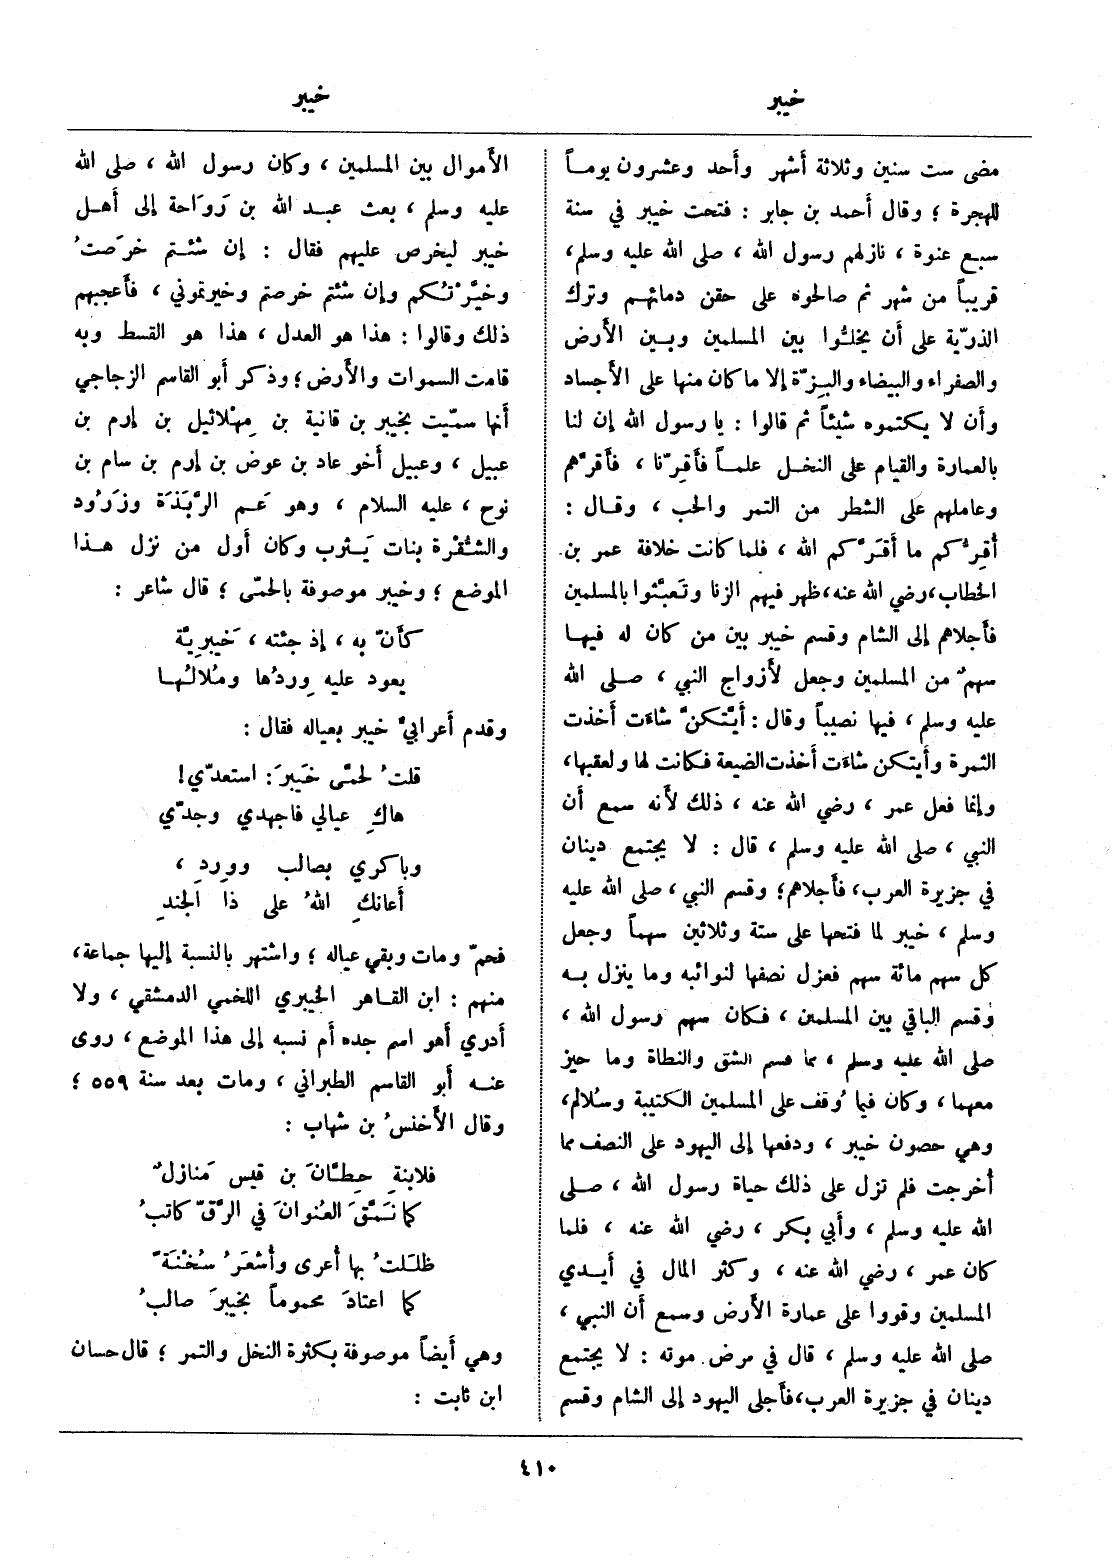 خيبر
خيبر
مضى ست سنين وثلاثة أشهر وأحد وعشرون يوماً
للهجرة ؛ وقال أحمد بن جابر : فتحت خيبر في سنة
سبع عنوة ، نازلهم رسول الله ، صلى الله عليه وسلم،
قريباً من شهر ثم صالحوه على حقن دمائهم وترك
الذرّية على أن يخلّوا بين المسلمين وبين الأرض
والصفراء والبيضاء والبزّة إلا ما كان منها على الأجساد
وأن لا يكتموه شيئاً ثم قالوا : يا رسول الله إن لنا
بالعمارة والقيام على النخل علماً فأقِرّنا ، فأقرّهم
وعاملهم على الشطر من التمر والحب ، وقال :
أُقِرُّكم ما أقَرَّكم الله ، فلما كانت خلافة عمر بن
الخطاب، رضي الله عنه، ظهر فيهم الزنا وتَعبّثوا بالمسلمين
فأجلاهم إلى الشام وقسم خيبر بين من كان له فيها
سهمٌ من المسلمين وجعل لأزواج النبي ، صلى الله
عليه وسلم ، فيها نصيباً وقال : أيّتكنَّ شاءَت أخذت
الثمرة وأيتكن شاءَت أخذت الضيعة فكانت لها ولعقبها،
وإنما فعل عمر ، رضي الله عنه ، ذلك لأنه سمع أن
النبي ، صلى الله عليه وسلم ، قال : لا يجتمع دينان
في جزيرة العرب، فأجلاهم؛ وقسم النبي ، صلى الله عليه
وسلم ، خيبر لما فتحها على ستة وثلاثين سهماً وجعل
كل سهم مائة سهم فعزل نصفها لنوائبه وما ينزل به
وقسم الباقي بين المسلمين ، فكان سهم رسول الله ،
صلى الله عليه وسلم ، مما قسم الشق والنطاة وما حيز
معهما ، وكان فيما وُقف على المسلمين الكتيبة وسُلالم،
وهي حصون خيبر ، ودفعها إلى اليهود على النصف مما
أخرجت فلم تزل على ذلك حياة رسول الله ، صلى
الله عليه وسلم ، وأبي بكر ، رضي الله عنه ، فلما
كان عمر ، رضي الله عنه ، وكثر المال في أيدي
المسلمين وقووا على عمارة الأرض وسمع أن النبي ،
صلى الله عليه وسلم ، قال في مرض موته : لا يجتمع
دينان في جزيرة العرب، فأجلى اليهود إلى الشام وقسم
الأموال بين المسلمين ، وكان رسول الله ، صلى الله
عليه وسلم ، بعث عبد الله بن رَوَاحة إلى أهل
خيبر ليخرص عليهم فقال : إن شئتم خرَصتُ
وخيَّرْتُكم وإن شئتم خرصتم وخيرتموني ، فأعجبهم
ذلك وقالوا : هذا هو العدل ، هذا هو القسط وبه
قامت السموات والأرض؛ وذكر أبو القاسم الزجاجي
أنها سمّيت بخيبر بن قانية بن مِهْلائيل بن إرم بن
عبيل ، وعبيل أخو عاد بن عوض بن إرم بن سام بن
نوح ، عليه السلام ، وهو عَم الرَّبَذَة وزَرُود
والشُّقْرة بنات يَثرب وكان أول من نزل هذا
الموضع ؛ وخيبر موصوفة بالحمّى ؛ قال شاعر :
كأنّ به ، إذ جئته ، خَيبريّةً
يعود عليه وِردُها ومُلالُها
وقدم أعرابيّ خيبر بعياله فقال :
قلتُ لحمّى خَيبرَ : استعدّي!
هاكِ عيالي فاجهدي وجدّي
وباكري بصالب ووِردِ ،
أعانكِ اللهُ على ذا الجندِ
فحمّ ومات وبقي عياله ؛ واشتهر بالنسبة إليها جماعة،
منهم : ابن القاهر الخيبري اللخمي الدمشقي ، ولا
أدري أهو اسم جده أم نسبه إلى هذا الموضع ، روى
عنه أبو القاسم الطبراني ، ومات بعد سنة ٥٥٩ ؛
وقال الأخنسُ بن شهاب :
فلابنةِ حِطّانَ بن قيس مَنازلٌ
كما نَمّقَ العُنوانَ في الرَّقّ كاتبُ
ظلَلتُ بها أعرى وأُشعَرُ سُخْنَةً
كما اعتادَ محموماً بخيبرَ صالبُ
وهي أيضاً موصوفة بكثرة النخل والتمر ؛ قال حسان
ابن ثابت :
٤١٠